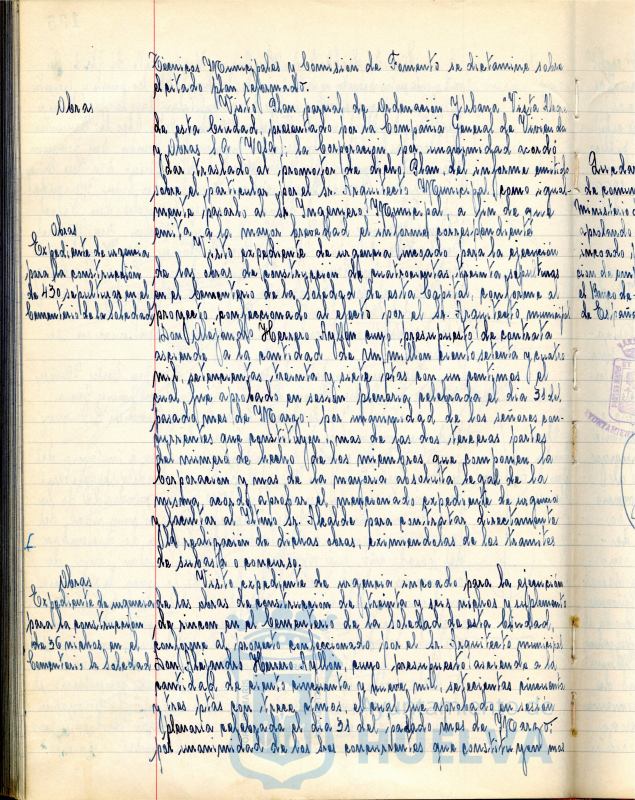 Técnicos Municipales y Comisión de Fomento se dictamine sobre
el citado plan reformado.
Obras
Visto Plan parcial de Ordenación Urbana Vista Alegre
de esta Ciudad, presentado por la Compañia General de Viviendas
y Obras S.A.; la Corporación, por unanimidad acordó
dar traslado al promotor de dicho Plan, del informe emitido
sobre el particular por el Sr. Arquitecto Municipal, como igual-
mente pasarlo al Sr. Ingeniero Municipal, a fin de que
emita, a la mayor brevedad el informe correspondiente
Obras
Expediente de urgencia
para la construcción
de 430 sepulturas en el
Cementerio de la Soledad
Visto expediente de urgencia incoado para la ejecución
de las obras de construcción de cuatrocientas treinta sepulturas
en el Cementerio de la Soledad, de esta Capital, conforme al
proyecto confeccionado al efecto por el Sr. Arquitecto municipal
Don Alejandro Herrero Ayllón cuyo presupuesto de contrata
asciende a la cantidad de Un millon ciento setenta y cuatro
mil setecientas treinta y siete ptas con un centimos el
cual fue aprobado en sesión plenaria celebrada el dia 31 del
pasado mes de Marzo; por unanimidad de los señores con-
currentes que constituyen mas de las dos terceras partes
del número de hecho de los miembros que componen la
Corporación y mas de la mayoria absoluta legal de la
misma, acordó aprobar el mencionado expediente de urgencia
y facultar al Iltmo Sr. Alcalde para contratar directamente
la realización de dichas obras, eximiendolas de los tramites
de subasta o concurso.
Obras
Expediente de urgencia
para la construcción
de 36 nichos en el
Cementerio la Soledad
Visto expediente de urgencia incoado para la ejecución
de las obras de construcción de treinta y seis nichos y suplemento
de rincon en el Cementerio de la Soledad de esta Ciudad,
conforme al proyecto confeccionado por el Sr. Arquitecto municipal
Don Alejandro Herrero Ayllón, cuyo presupuesto asciende a la
cantidad de ciento cincuenta y nueve mil, setecientas cincuenta
y tres ptas con trece ctmos, el cual fue aprobado en sesión
plenaria celebrada el dia 31 del pasado mes de Marzo
por unanimidad de los Sres concurrentes que constituyen mas
HUELVA